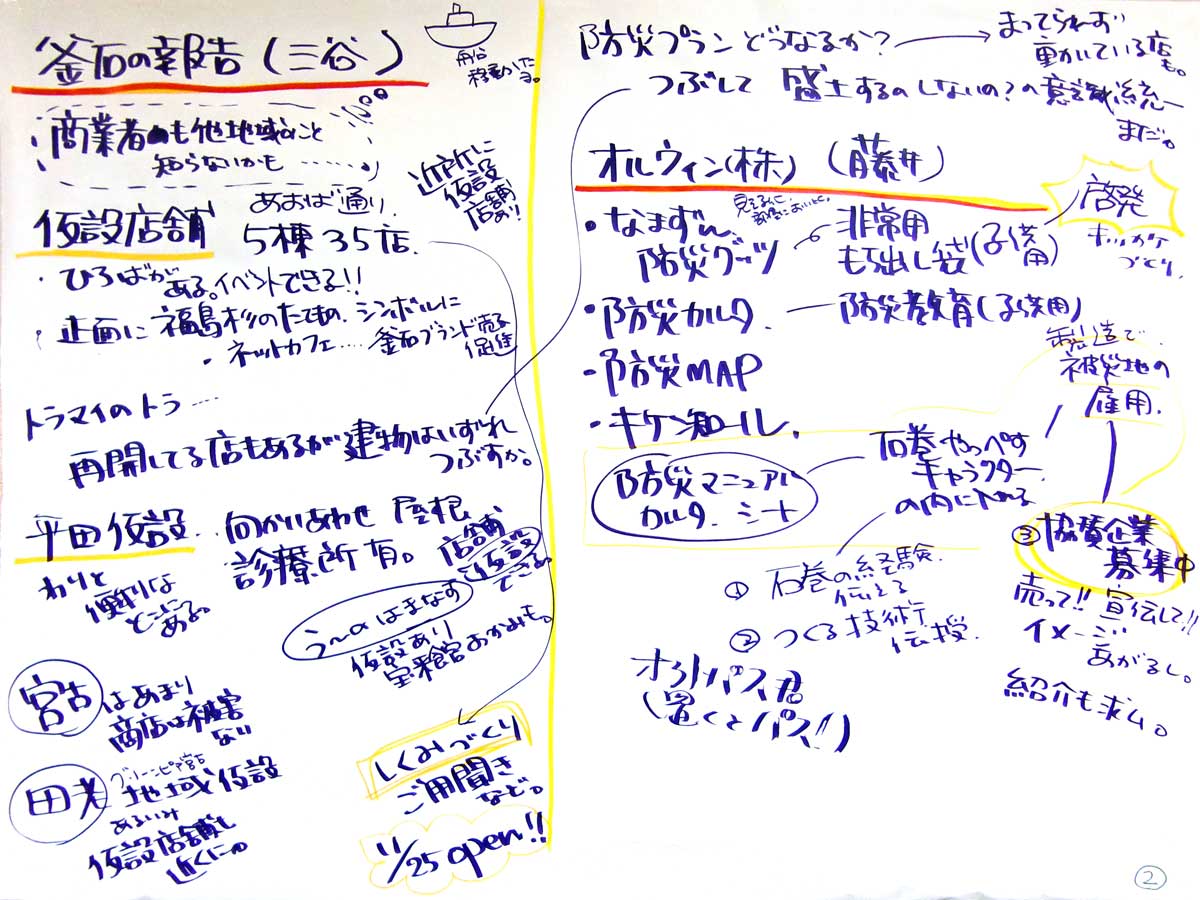 釜石の報告(三谷)
舟谷
移動した
る。
商業者も他地域のこと
知らないかも……
近所に
仮設
店舗
あり!
仮設店舗
あおば通り
5棟35店.
・ひろばが
ある。イベントできる!!
・正面に福島杉のたてもの、シンボルに
・ネットカフェ…. 釜石ブランド売る
促進
トラマイのトラ…
再開してる店もあるが建物はいずれ
つぶすか。
平田仮設..向かいあわせ 屋根
診療所有。
店舗
仮設
できる。
わりと
便利な
とこに
ある。
う〜の はまなす
仮設あり
宝来館おかみも。
宮古はあまり
商店は被害
ない
田老
グリーンピア宮古
地域仮設
あるいみ
仮設店舗も
近くにの
しくみづくり
ご用聞き
など。
11/25 open!!
防災プランどうなるか?
まってられず
動いている店
も。
つぶして 盛土するのしないの?の意識統一
まだ。
オルウィン(株) (藤井)
・なまずん
防災グッツ
非常用
もち出し袋(子供用)
啓発
キッカケ
づくり
・防災カルタ. ー防災教育(子供用)
・防災MAP
・キケン知ール.
製造で
被災地の
雇用.
防災マニュアル
カルタ. シート
石巻やっぺす
キャラクター
の内に入れる
① 石巻の経験.
伝える
② つくる技術
伝授.
③ 協賛企業
募集中
売って!! 宣伝して!!
イメージ
あがるし。
紹介も求ム。
オクトパス君
(置くとパス!)
2